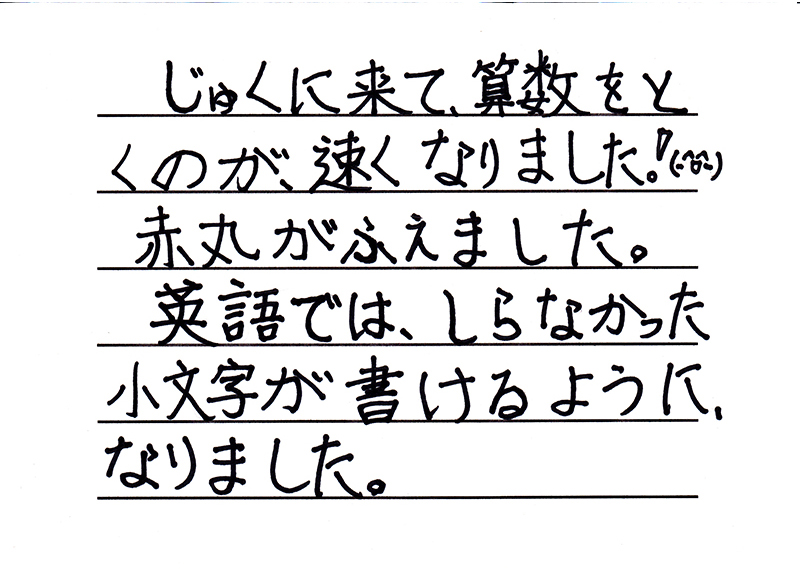 じゅくに来て、算数をと
くのが、速くなりました。!(^○^)
赤丸がふえました。
英語では、しらなかった
小文字が書けるように、
なりました。